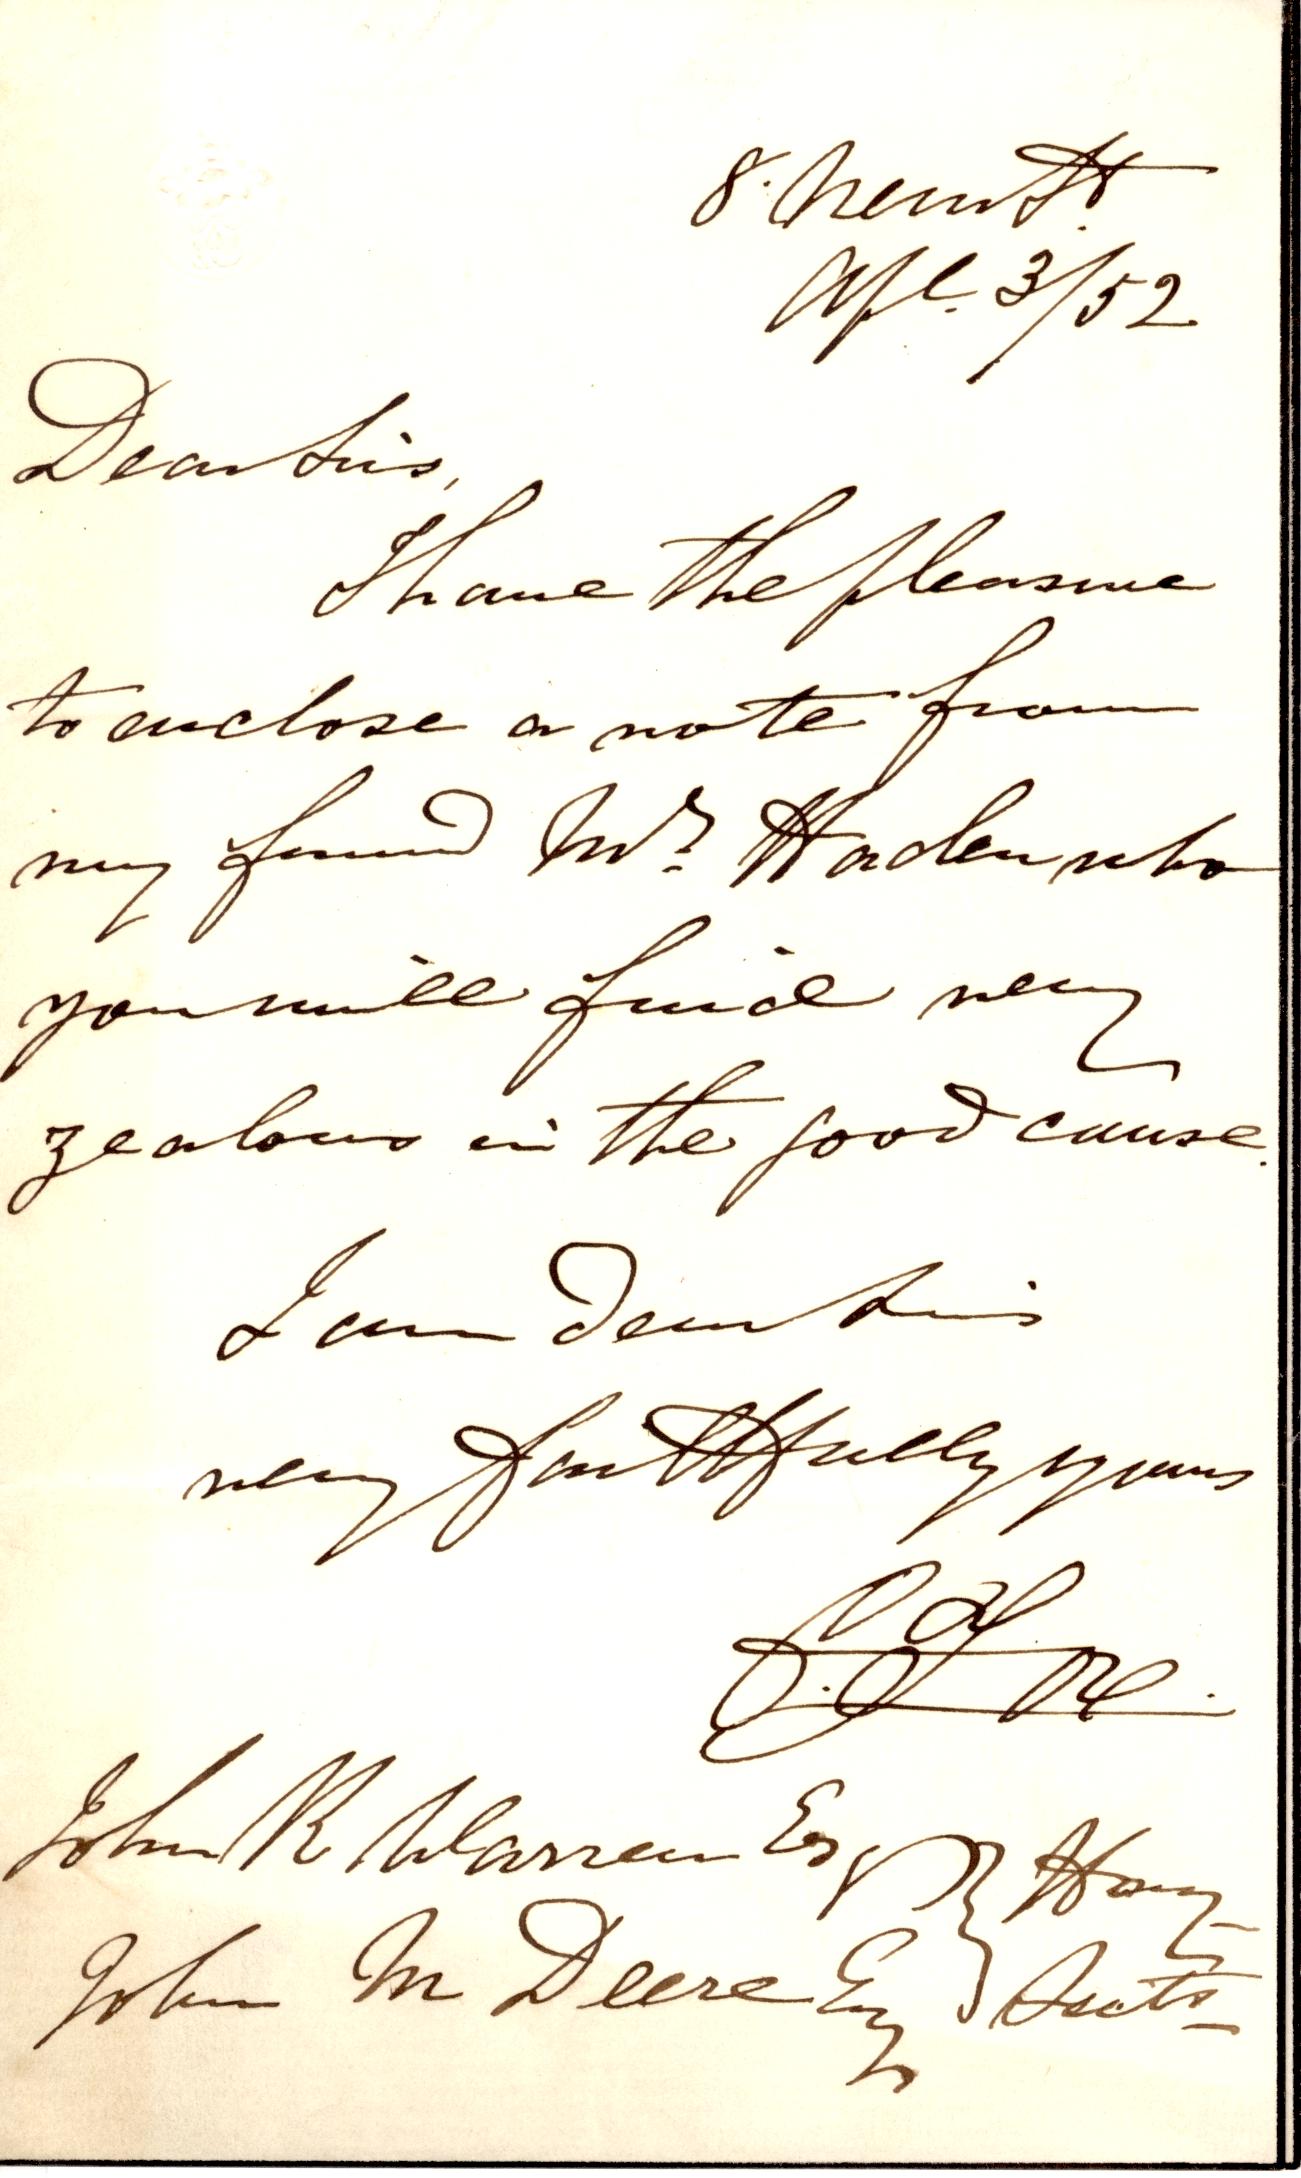 8. New St.
Apl. 3/52
Dear Sirs,
I have the pleasure
to enclose a note from
my friend Mr. Haden who
you will find very
zealous in the good cause.
I am Dear Sirs
very faithfully yours
John R Warren Esq
John M Deere Esq
Hony
Sects